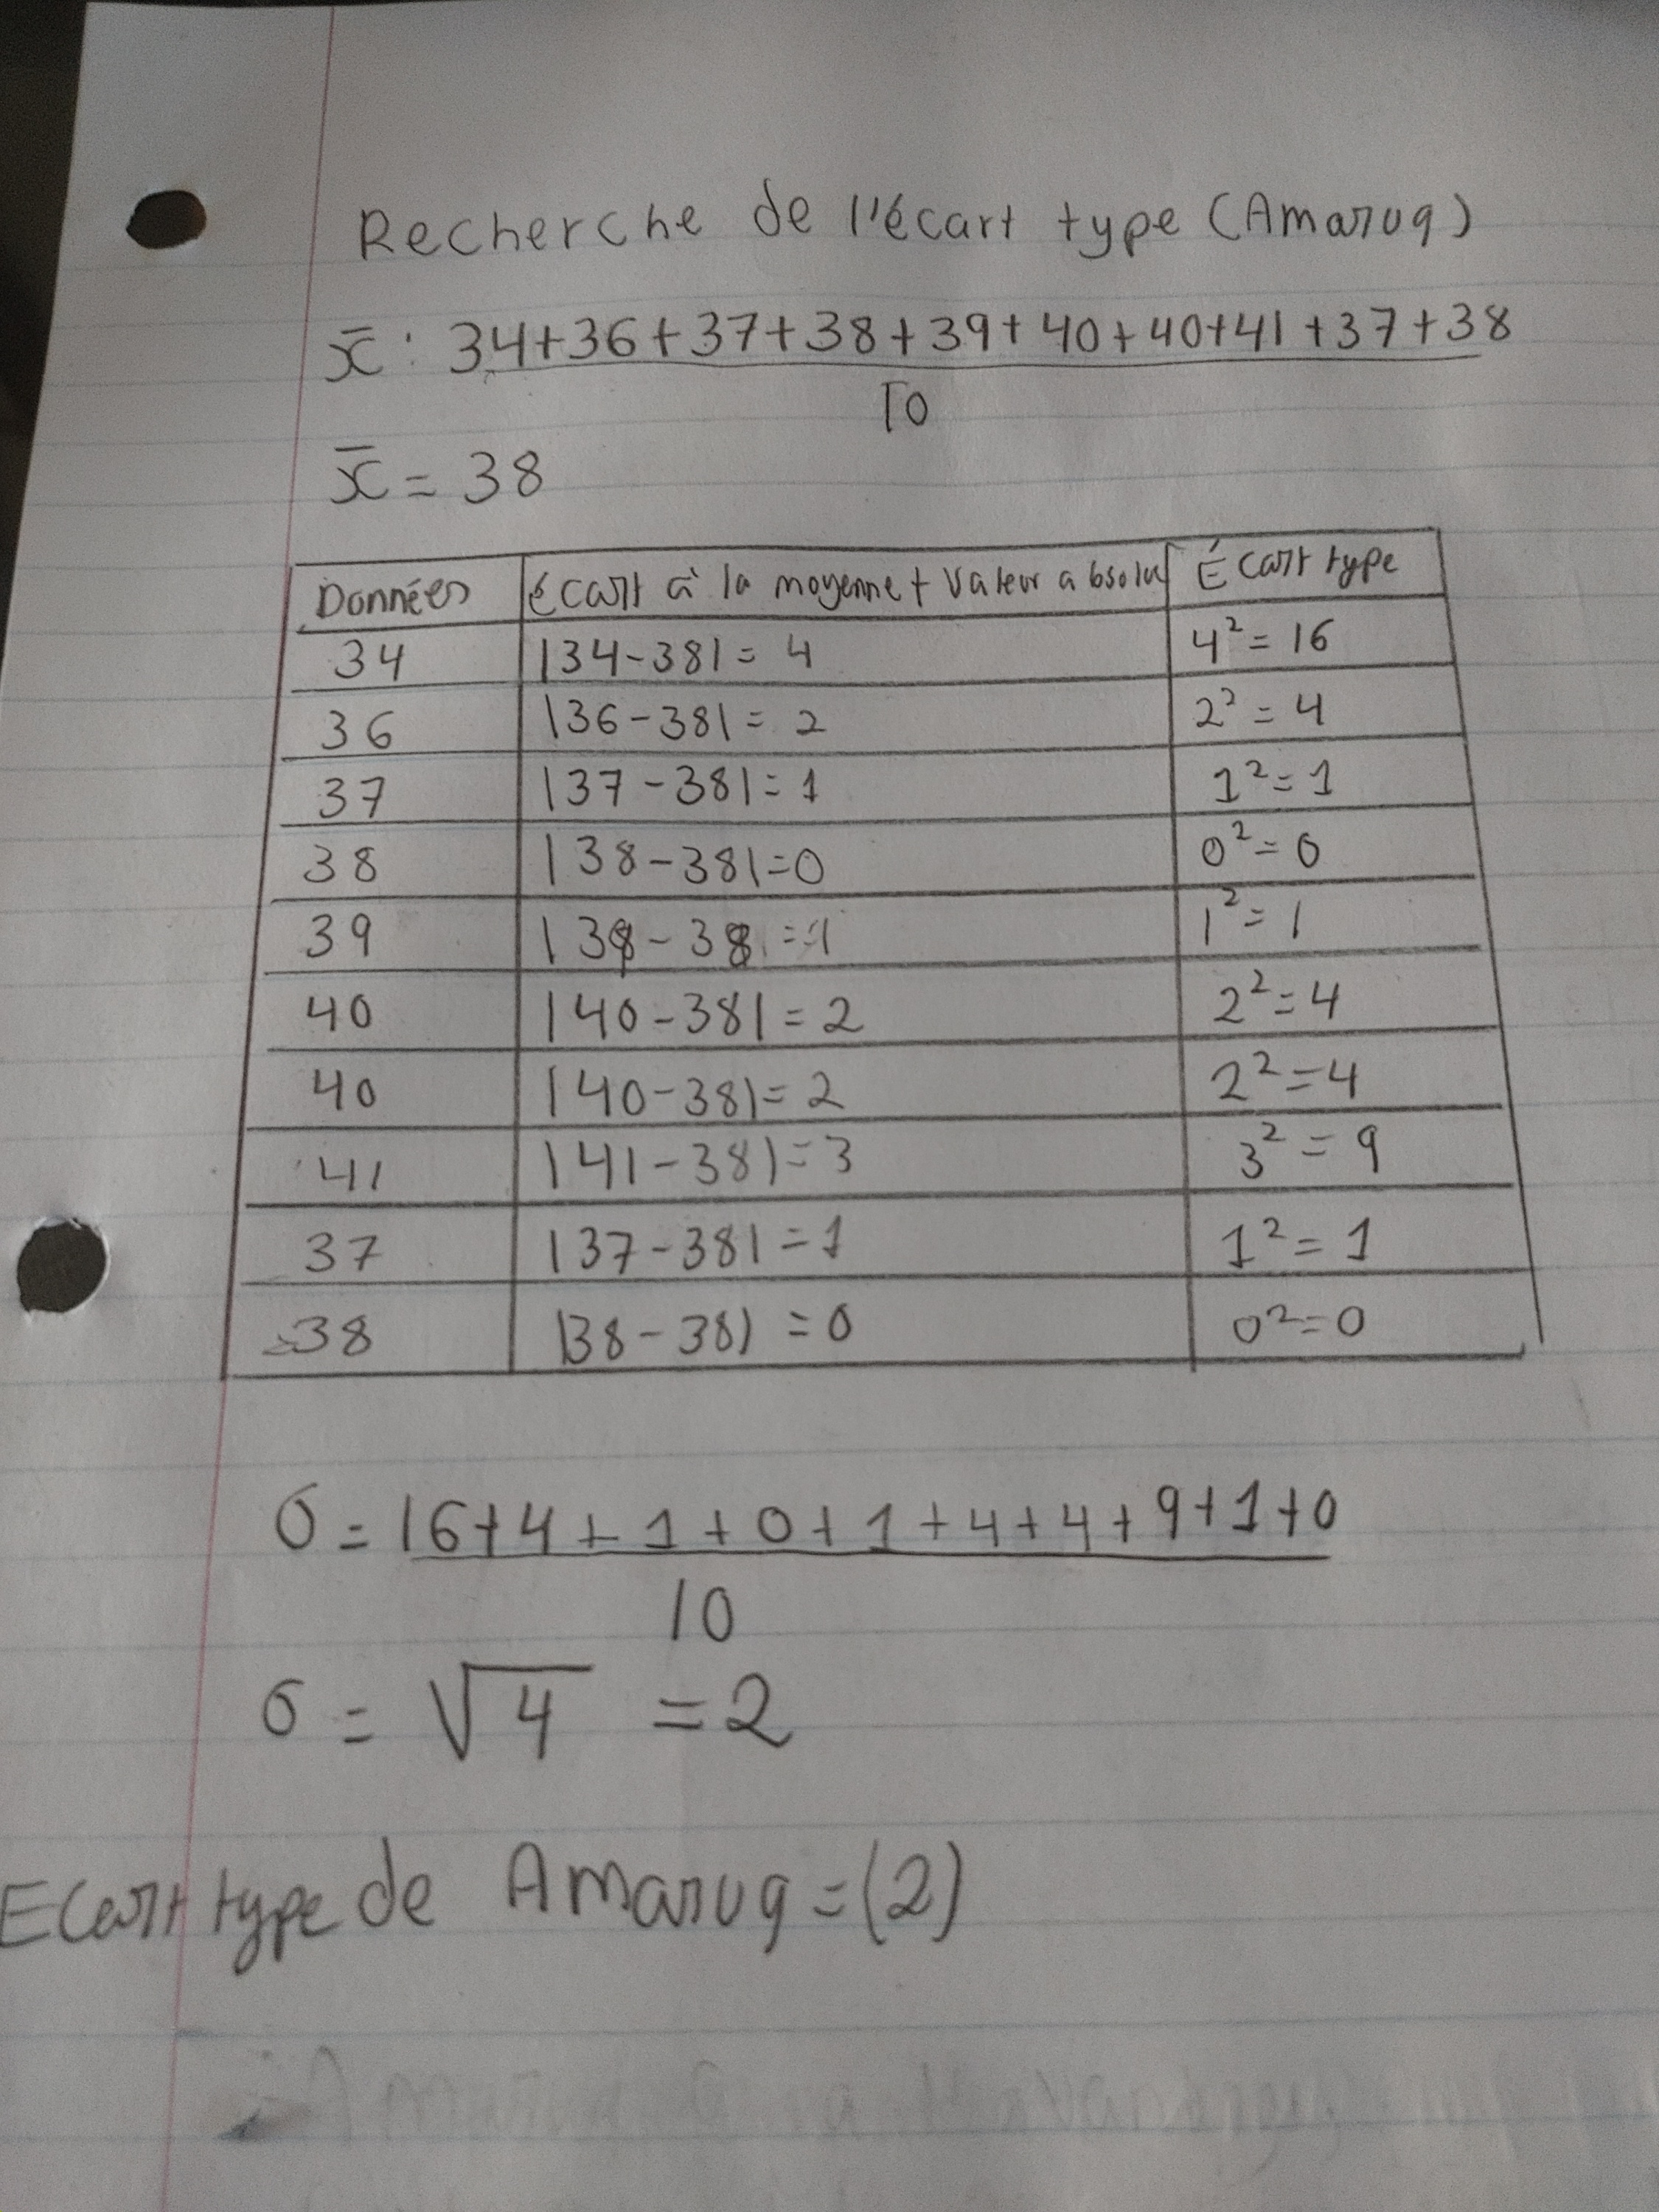 Recherche de l'écart type (Amaruq)
x̄ : 34+36+37+38+39+40+40+41+37+38
10
x̄ = 38
Données | Écart à la moyenne + Valeur absolu | Écart type
34 | |34-38| = 4 | 4² = 16
36 | |36-38| = 2 | 2² = 4
37 | |37-38| = 1 | 1² = 1
38 | |38-38| = 0 | 0² = 0
39 | |39-38 = 1 | 1² = 1
40 | |40-38| = 2 | 2² = 4
40 | |40-38| = 2 | 2² = 4
41 | |41-38| = 3 | 3² = 9
37 | |37-38| = 1 | 1² = 1
38 | |38-38| = 0 | 0² = 0
σ = 16+4+1+0+1+4+4+9+1+0
10
σ = √4 = 2
Ecart type de Amaruq = (2)